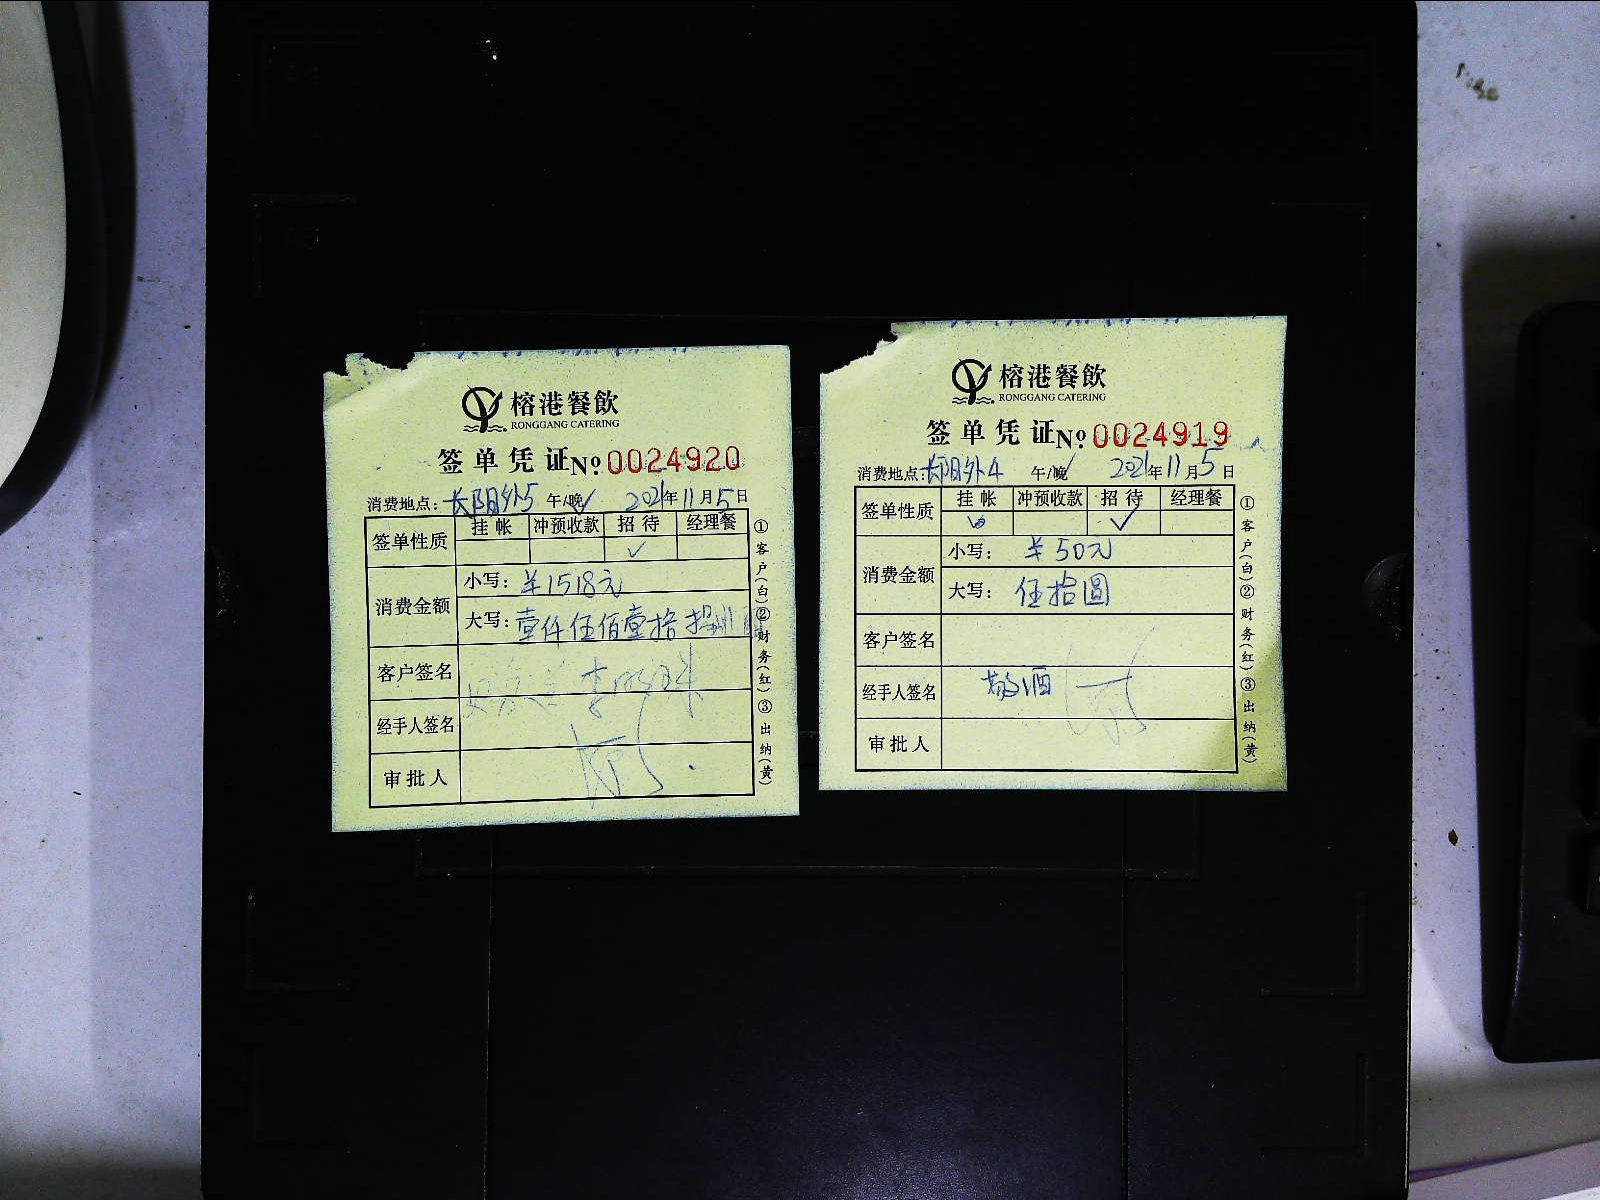 榕港餐飲
RONGGANG CATERING
签单凭证 No 0024920
消费地点: 长阳外5 午/晚 2021年11月5日
签单性质 挂帐 冲预收款 招待 经理餐
✓
消费金额 小写: ¥1518元
大写: 壹仟伍佰壹拾
客户签名
经手人签名
审批人
①客户(白)②财务(红)③出纳(黄)
榕港餐飲
RONGGANG CATERING
签单凭证 No 0024919
消费地点: 长阳外4 午/晚 2021年11月5日
签单性质 挂帐 冲预收款 招待 经理餐
✓
消费金额 小写: ¥50元
大写: 伍拾圆
客户签名
经手人签名
审批人
①客户(白)②财务(红)③出纳(黄)